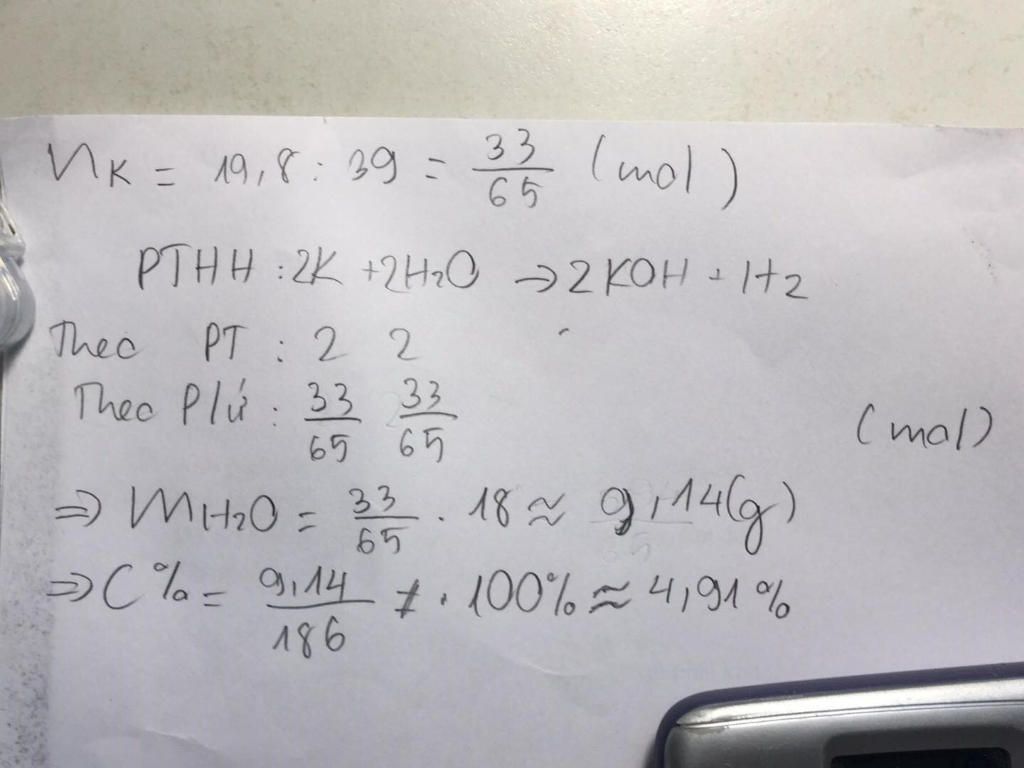 nK = 19,8 : 39 = 33/65 (mol)
PTHH : 2K + 2H2O → 2KOH + H2
Theo PT : 2 2
Theo P/ứ : 33/65 33/65 (mol)
⇒ mH2O = 33/65 . 18 ≈ 9,14(g)
⇒ C% = 9,14/186 . 100% ≈ 4,91%